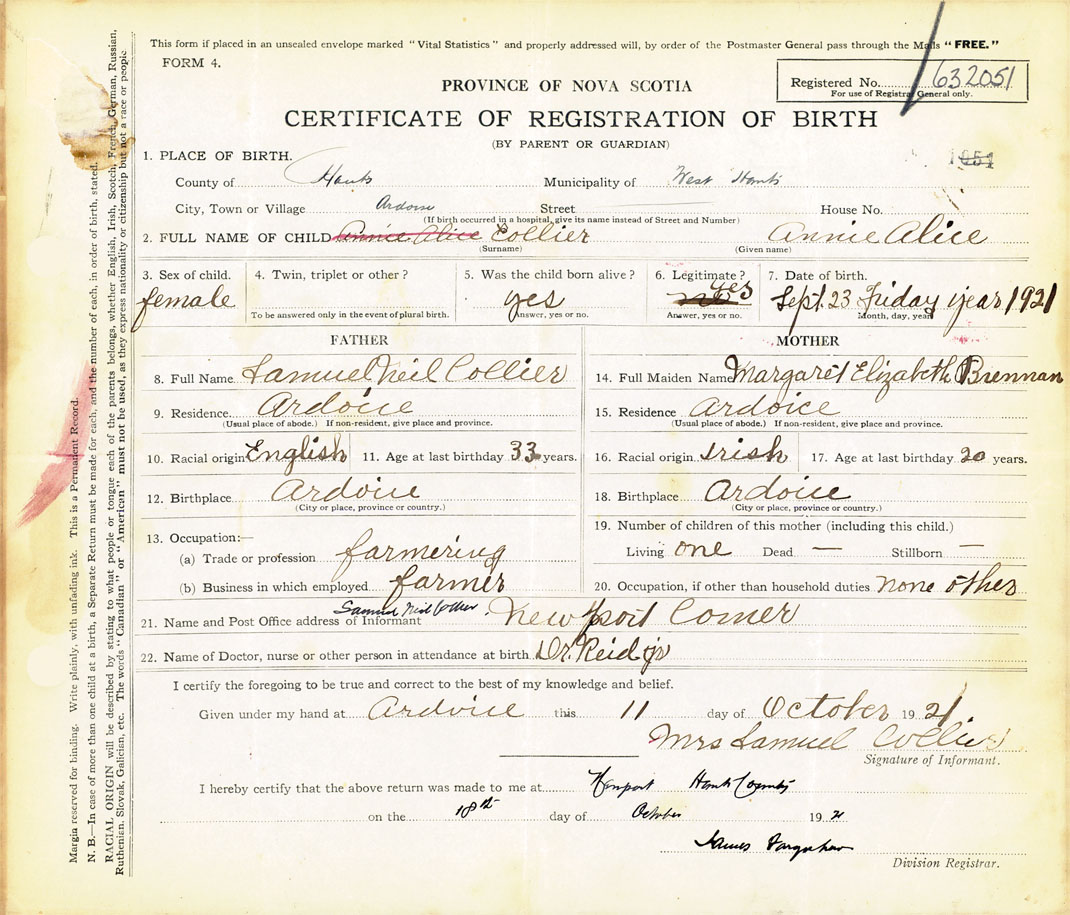 This form if placed in an unsealed envelope marked "Vital Statistics" and properly addressed will, by order of the Postmaster General pass through the Mails "FREE."
FORM 4.
Registered No. 632051
For use of Registrar General only.
PROVINCE OF NOVA SCOTIA
CERTIFICATE OF REGISTRATION OF BIRTH
(BY PARENT OR GUARDIAN)
1. PLACE OF BIRTH.
County of Hants Municipality of West Hants
City, Town or Village Ardoise Street House No.
(If birth occurred in a hospital, give its name instead of Street and Number)
2. FULL NAME OF CHILD Annie Alice Collier Annie Alice
(Surname) (Given name)
3. Sex of child. 4. Twin, triplet or other? 5. Was the child born alive? 6. Legitimate? 7. Date of birth.
female yes yes Sept. 23 Friday year 1921
To be answered only in the event of plural birth. Answer, yes or no. Answer, yes or no. Month, day, year
FATHER MOTHER
8. Full Name Samuel Neil Collier 14. Full Maiden Name Margaret Elizabeth Brennan
9. Residence Ardoice 15. Residence Ardoice
(Usual place of abode.) If non-resident, give place and province. (Usual place of abode.) If non-resident, give place and province.
10. Racial origin English 11. Age at last birthday 33 years. 16. Racial origin Irish 17. Age at last birthday 20 years.
12. Birthplace Ardoice 18. Birthplace Ardoice
(City or place, province or country.) (City or place, province or country.)
13. Occupation:— 19. Number of children of this mother (including this child.)
(a) Trade or profession farmering Living one Dead — Stillborn —
(b) Business in which employed farmer 20. Occupation, if other than household duties none other
Samuel Neil Collier
21. Name and Post Office address of Informant Newport Corner
22. Name of Doctor, nurse or other person in attendance at birth Dr. Reid jr
I certify the foregoing to be true and correct to the best of my knowledge and belief.
Given under my hand at Ardoice this 11 day of October 1921
Mrs Samuel Collier
Signature of Informant.
I hereby certify that the above return was made to me at Newport Hants County
on the 18th day of October 1921
James Farquhar
Division Registrar.
Margin reserved for binding. Write plainly, with unfading ink. This is a Permanent Record.
N. B.—In case of more than one child at a birth, a Separate Return must be made for each, and the number of each, in order of birth, stated.
RACIAL ORIGIN will be described by stating to what people or tongue each of the parents belongs, whether English, Irish, Scotch, French, German, Russian,
Ruthenian, Slovak, Galician, etc. The words "Canadian" or "American" must not be used, as they express nationality or citizenship but not a race or people